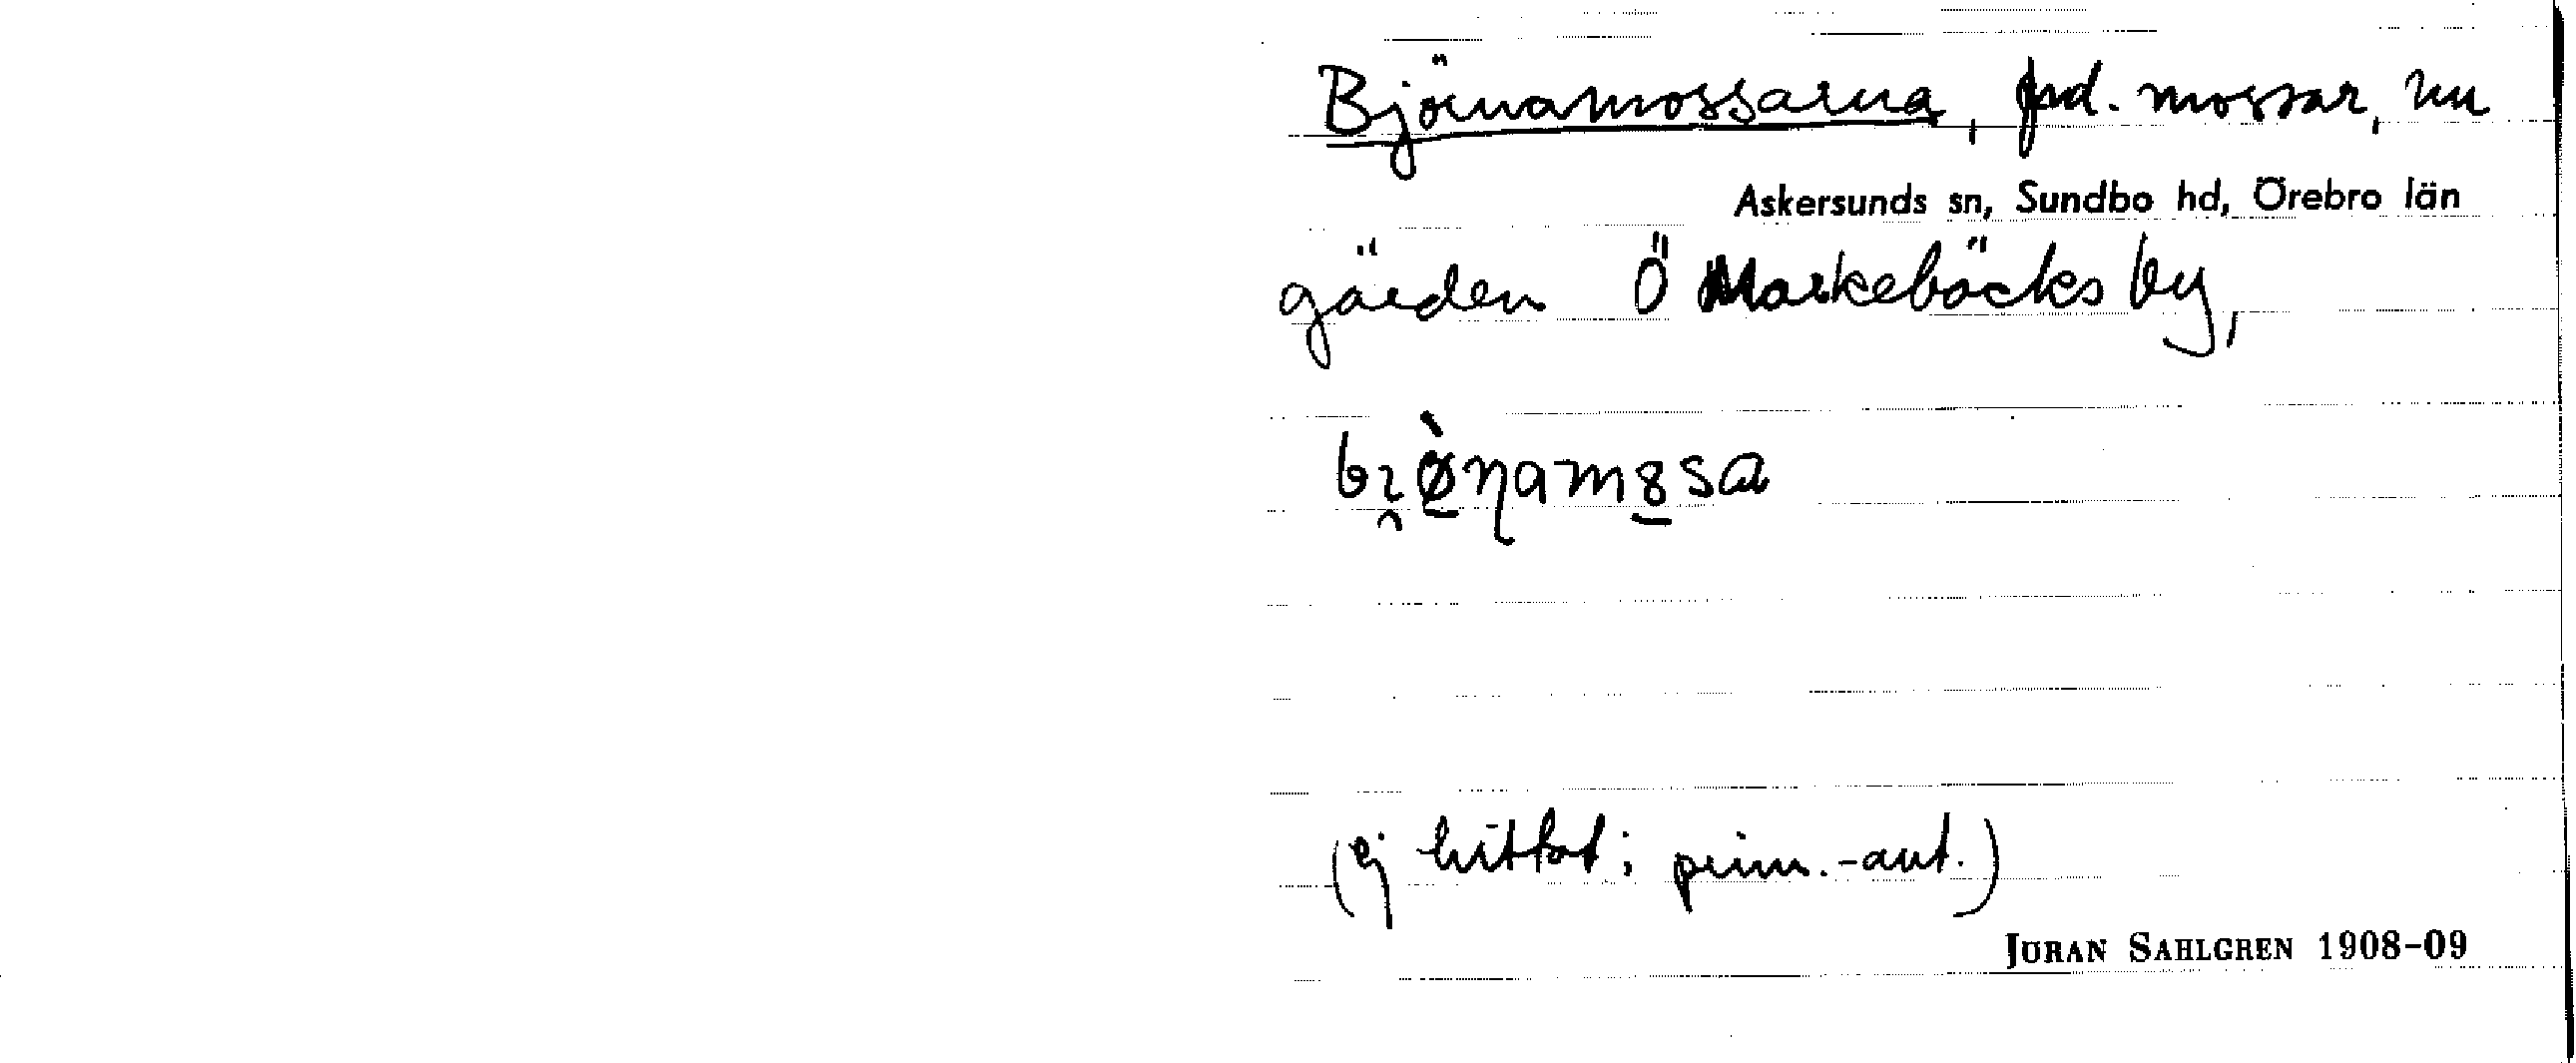 Björnamossarna, frd. mossar, nu
Askersunds sn, Sundbo hd, Örebro län
gärden Ö Markebäcks by,
(ej hittat; prim.-ant.)
JÖRAN SAHLGREN 1908-09